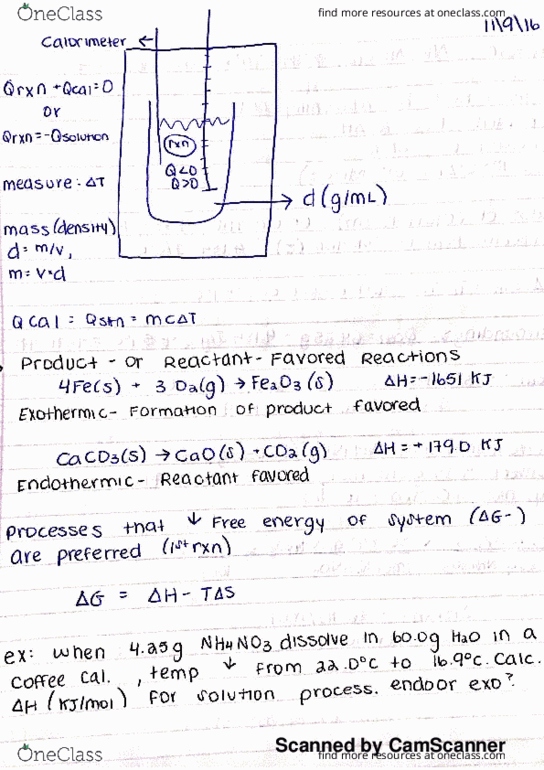 OneClass
find more resources at oneclass.com
11/9/16
Calorimeter ←
Qrxn + Qcal = 0
or
Qrxn = -Qsolution
rxn
Q<0
Q>0
measure: ΔT
→ d(g/mL)
mass (density)
d = m/v,
m = v•d
Qcal = Qsₜn = mcΔT
Product - or Reactant - Favored Reactions
4Fe(s) + 3 O2(g) → Fe2O3(s) ΔH = -1651 KJ
Exothermic - Formation of product favored
CaCO3(s) → CaO(s) + CO2(g) ΔH = +179.0 KJ
Endothermic - Reactant favored
Processes that ↓ Free energy of system (ΔG-)
are preferred (1st rxn)
ΔG = ΔH - TΔS
ex: when 4.25g NH4NO3 dissolve in 60.0g H2O in a
coffee cal. , temp ↓ from 22.0°C to 16.9°C. Calc.
ΔH (KJ/mol) for solution process. endo or exo?
Scanned by CamScanner
OneClass
find more resources at oneclass.com